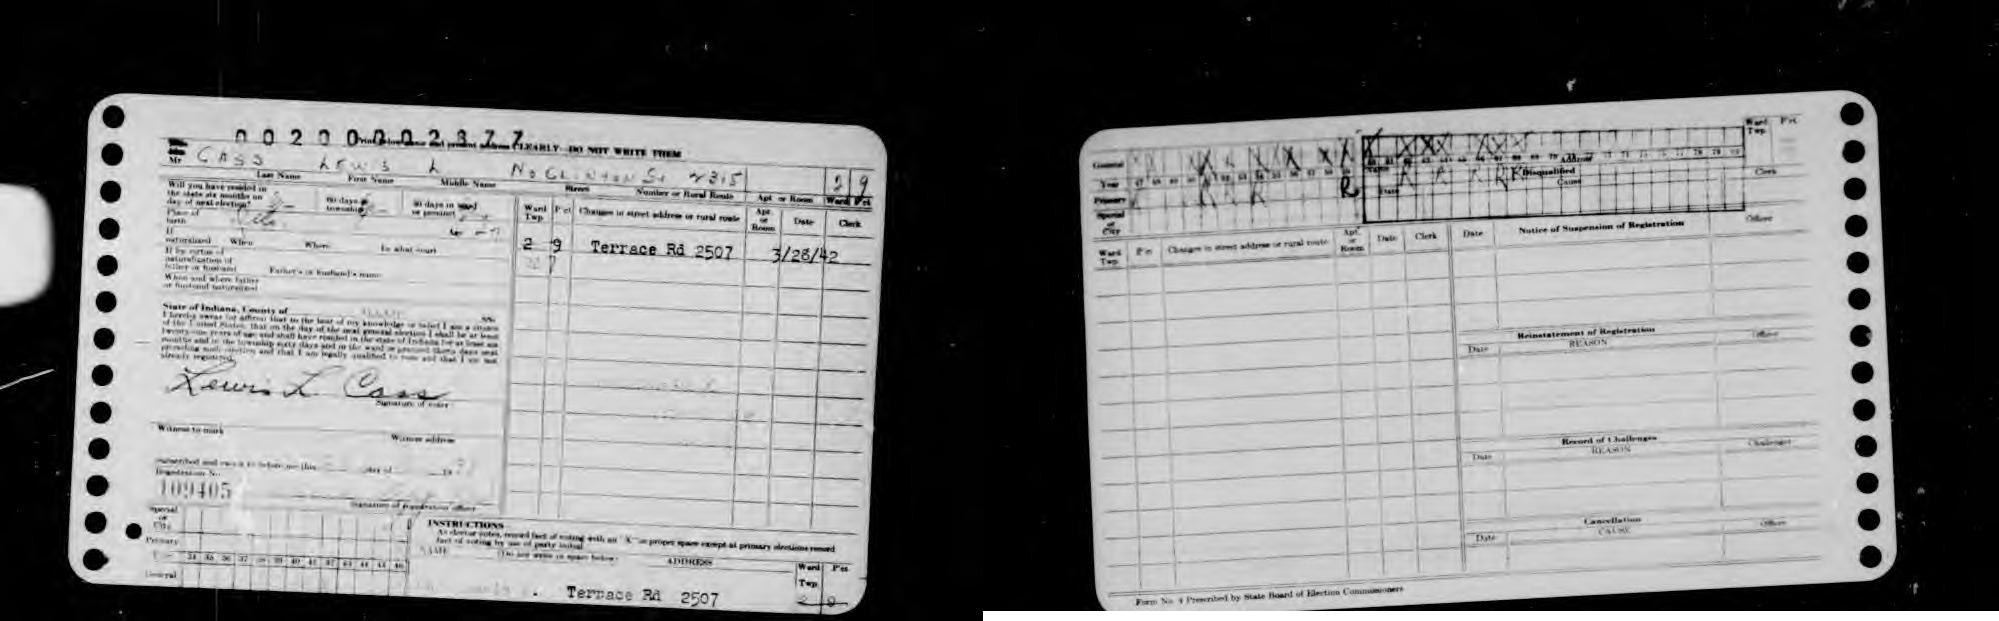 0020000 2377
Print below name and present address CLEARLY—DO NOT WRITE THEM
Mr CASS LEWIS L NO CLINTON ST 2315 2 9
Last Name First Name Middle Name Street Number or Rural Route Apt or Room Ward Pct
Will you have resided in the state six months on day of next election?
60 days in township
30 days in ward or precinct
Place of birth
If naturalized When Where In what court
If by virtue of naturalization of father or husband Father's or husband's name
When and where father or husband naturalized
Ward Twp Pct Changes in street address or rural route Apt. or Room Date Clerk
2 9 Terrace Rd 2507 3/28/42
State of Indiana, County of SS:
I hereby swear (or affirm) that to the best of my knowledge or belief I am a citizen
of the United States, that on the day of the next general election I shall be at least
twenty-one years of age and shall have resided in the state of Indiana for at least six
months and in the township sixty days and in the ward or precinct thirty days next
preceding such election and that I am legally qualified to vote and that I am not
already registered.
Lewis L Cass
Signature of voter
Witness to mark Witness address
Subscribed and sworn to before me this day of 19
Registration No.
109405
Signature of registration officer
Special or City
Primary
Year 34 35 36 37 38 39 40 41 42 43 44 45 46
General
INSTRUCTIONS
As elector votes, record fact of voting with an "X" in proper space except at primary elections record
fact of voting by use of party initial
NAME (Do not write in space below) ADDRESS Ward Twp Pct
Terrace Rd 2507 2 9
General
Year 47 48 49
Primary R R R R R R R R
Special or City
Name Address Ward Twp. Pct.
Date Disqualified Cause Clerk
Ward Twp. Pct Changes in street address or rural route Apt. or Room Date Clerk
Date Notice of Suspension of Registration Officer
Reinstatement of Registration
Date REASON Officer
Record of Challenges
Date REASON Challenger
Cancellation
Date CAUSE Officer
Form No. 4 Prescribed by State Board of Election Commissioners